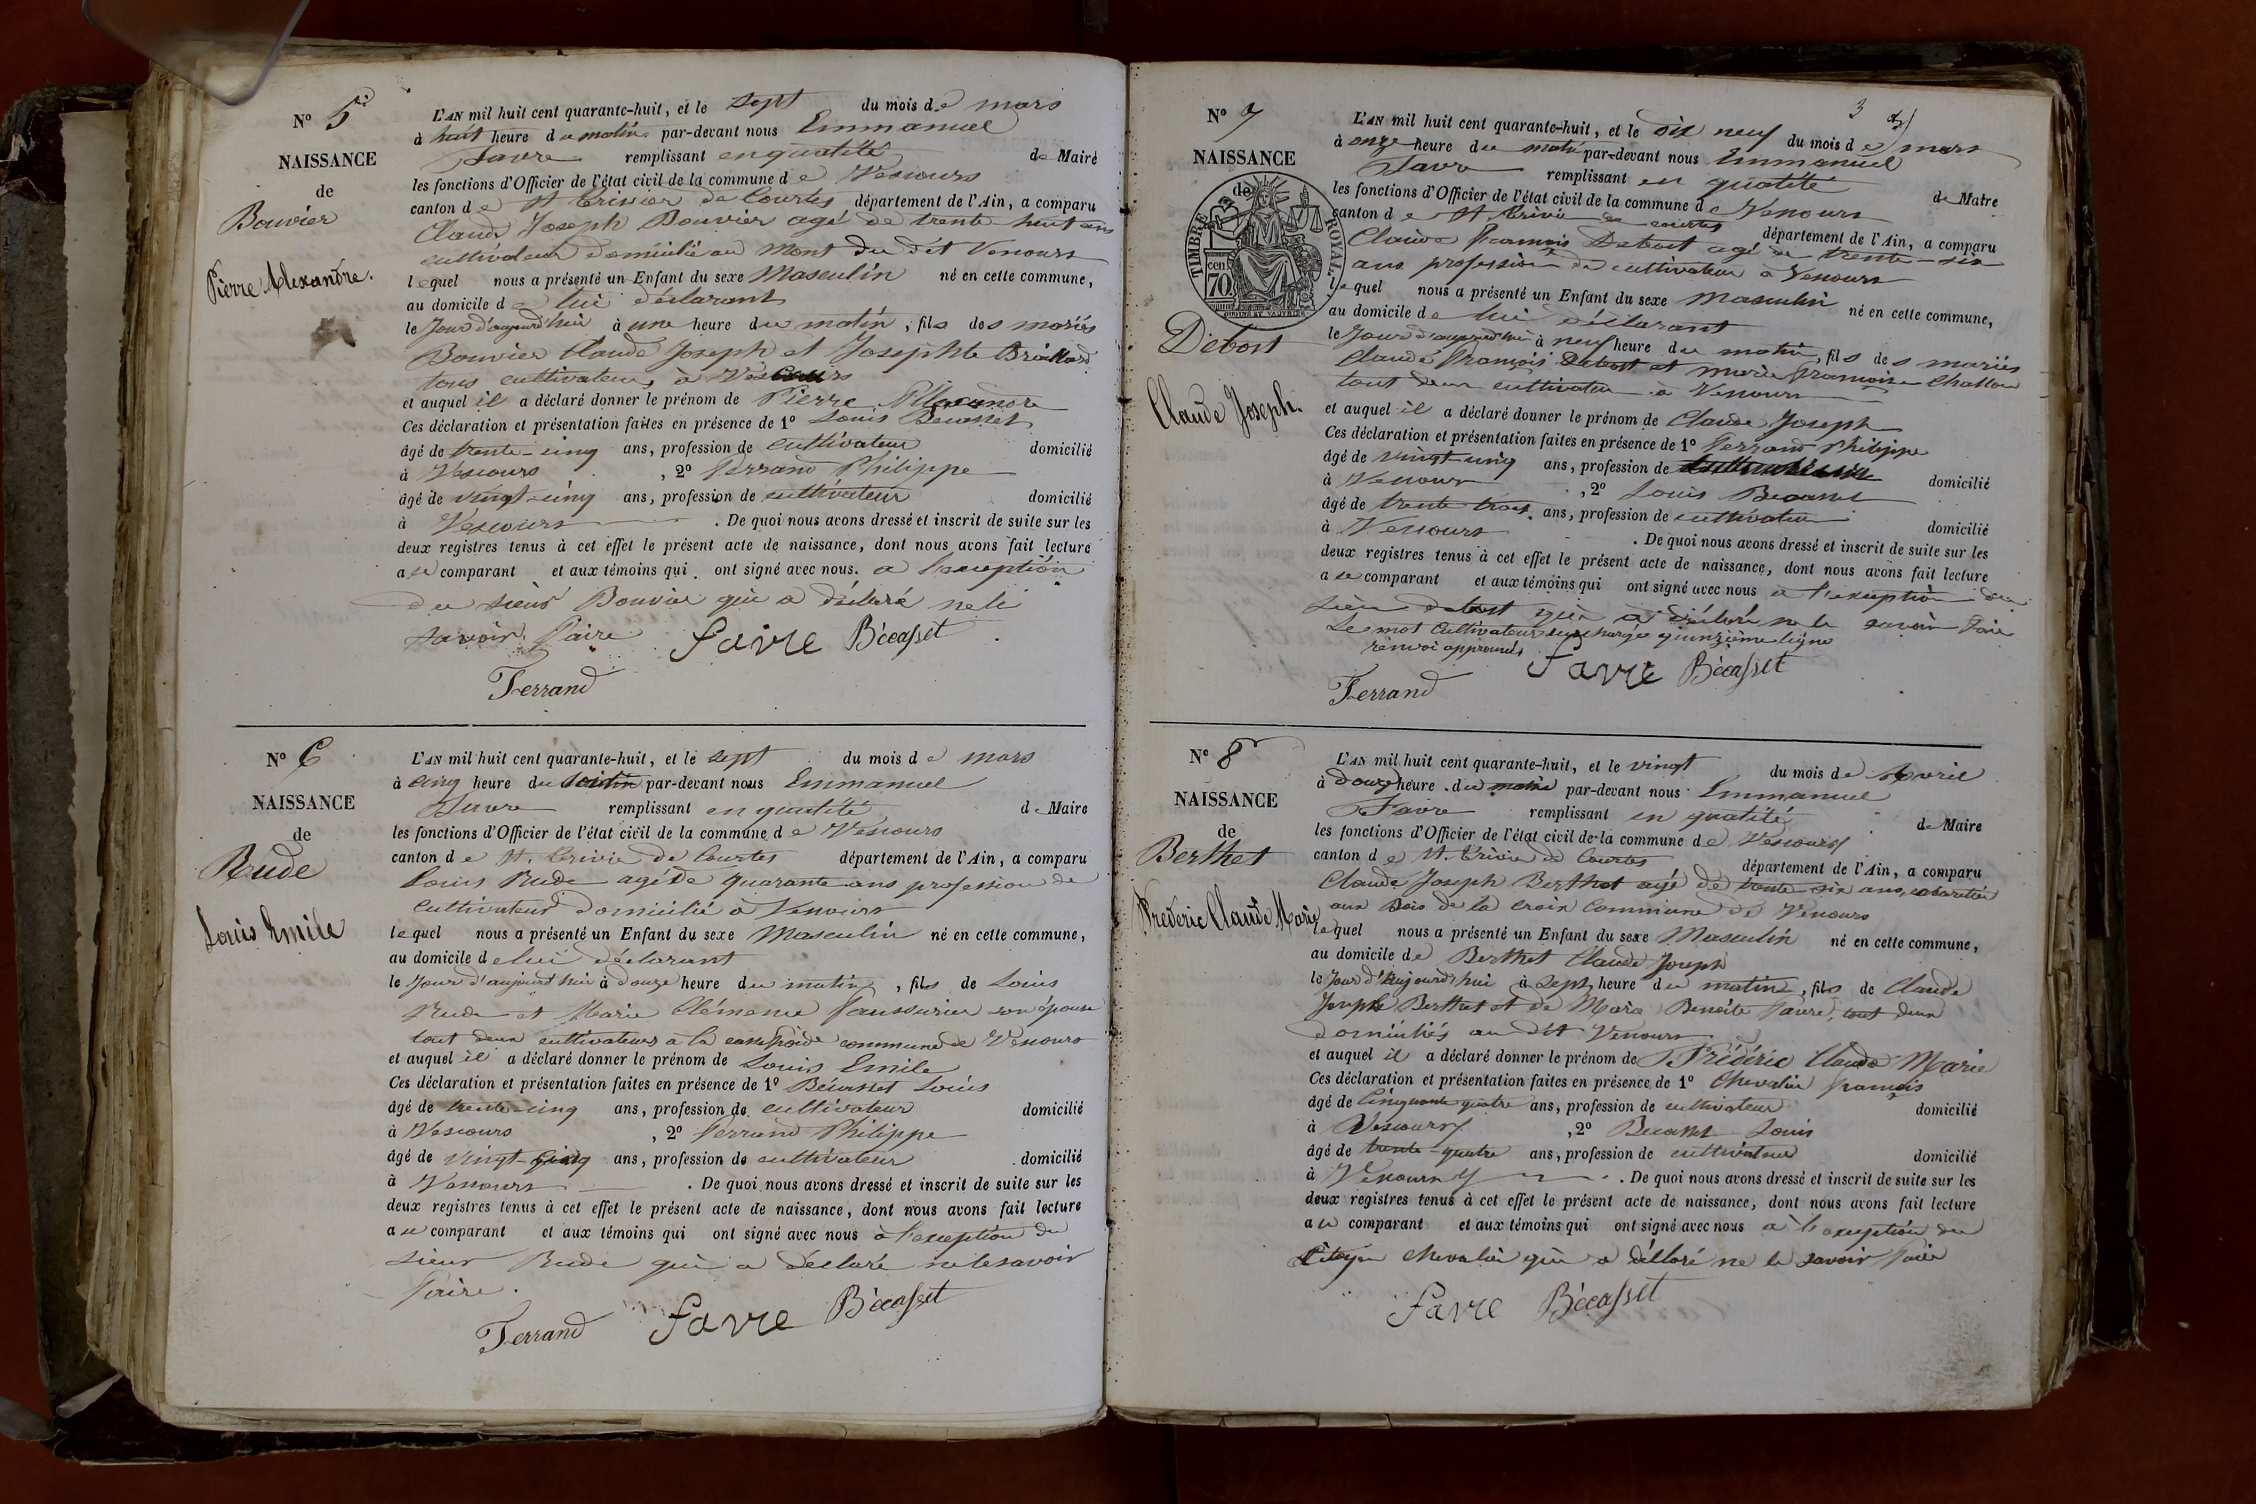 N° 5
NAISSANCE
de
Bouvier
Pierre Alexandre.
L'AN mil huit cent quarante-huit, et le sept du mois de mars
à huit heure du matin par-devant nous Emmanuel
Favre remplissant en qualité de Maire
les fonctions d'Officier de l'état civil de la commune de Vescours
canton de St Trivier de Courtes département de l'Ain, a comparu
Claude Joseph Bouvier agé de trente-huit ans
cultivateur domicilié au Mont du dit Vescours
lequel nous a présenté un Enfant du sexe Masculin né en cette commune,
au domicile de lui déclarant
le Jour d'aujourd'hui à une heure du matin, fils des mariés
Bouvier Claude Joseph et Josephte
tous cultivateurs à Vescours
et auquel il a déclaré donner le prénom de Pierre Alexandre
Ces déclaration et présentation faites en présence de 1° Louis Becasset
âgé de trente-cinq ans, profession de cultivateur domicilié
à Vescours, 2° Ferrand Philippe
âgé de vingt-cinq ans, profession de cultivateur domicilié
à Vescours. De quoi nous avons dressé et inscrit de suite sur les
deux registres tenus à cet effet le présent acte de naissance, dont nous avons fait lecture
au comparant et aux témoins qui ont signé avec nous. a l'exception
du sieur Bouvier qui a déclaré ne le
savoir faire Favre Bécasset
Ferrand
N° 6
NAISSANCE
de
Rude
Louis Emile
L'AN mil huit cent quarante-huit, et le sept du mois de mars
à cinq heure du par-devant nous Emmanuel
Favre remplissant en qualité de Maire
les fonctions d'Officier de l'état civil de la commune de Vescours
canton de St. Trivier de Courtes département de l'Ain, a comparu
Louis Rude agé de quarante ans profession de
cultivateur domicilié à Vescours
lequel nous a présenté un Enfant du sexe Masculin né en cette commune,
au domicile de lui déclarant
le Jour d'aujourd'hui à douze heure du matin, fils de Louis
Rude et Marie Clémence son épouse
tout deux cultivateurs à la commune de Vescours
et auquel il a déclaré donner le prénom de Louis Emile
Ces déclaration et présentation faites en présence de 1° Bécasset Louis
âgé de trente-cinq ans, profession de cultivateur domicilié
à Vescours, 2° Ferrand Philippe
âgé de vingt-cinq ans, profession de cultivateur domicilié
à Vescours. De quoi nous avons dressé et inscrit de suite sur les
deux registres tenus à cet effet le présent acte de naissance, dont nous avons fait lecture
au comparant et aux témoins qui ont signé avec nous à l'exception du
sieur Rude qui a déclaré ne le savoir
faire.
Ferrand Favre Bécasset
3
N° 7
NAISSANCE
de
TIMBRE ROYAL
cen. 70
Debost
Claude Joseph.
L'AN mil huit cent quarante-huit, et le dix neuf du mois de mars
à onze heure du matin par-devant nous Emmanuel
Favre remplissant en qualité de Maire
les fonctions d'Officier de l'état civil de la commune de Vescours
canton de St. Trivier de courtes département de l'Ain, a comparu
Claude françois Debost agé de trente-six
ans profession de cultivateur à Vescours
lequel nous a présenté un Enfant du sexe Masculin né en cette commune,
au domicile de lui déclarant
le Jour d'aujourd'hui à neuf heure du matin, fils des mariés
Claude françois Debost et marie françoise
tout deux cultivateur à Vescours
et auquel il a déclaré donner le prénom de Claude Joseph
Ces déclaration et présentation faites en présence de 1° Ferrand Philippe
âgé de vingt-cinq ans, profession de cultivateur domicilié
à Vescours, 2° Louis Becasset
âgé de trente trois ans, profession de cultivateur domicilié
à Vescours. De quoi nous avons dressé et inscrit de suite sur les
deux registres tenus à cet effet le présent acte de naissance, dont nous avons fait lecture
au comparant et aux témoins qui ont signé avec nous a l'exception du
sieur debost qui a déclaré ne le savoir faire
Le mot cultivateur surchargé quinzième ligne
renvoi approuvés Favre Bécasset
Ferrand
N° 8
NAISSANCE
de
Berthet
Frederic Claude Marie
L'AN mil huit cent quarante-huit, et le vingt du mois de Avril
à douze heure du matin par-devant nous Emmanuel
Favre remplissant en qualité de Maire
les fonctions d'Officier de l'état civil de la commune de Vescours
canton de St. Trivier de Courtes département de l'Ain, a comparu
Claude Joseph Berthet agé de trente-six ans, cabaretier
aux Bois de la croix commune de Vescours
lequel nous a présenté un Enfant du sexe Masculin né en cette commune,
au domicile de Berthet Claude Joseph
le Jour d'Aujourd'hui à sept heure du matin, fils de Claude
Joseph Berthet et de Marie Benoite Favre, tout deux
domiciliés au dit Vescours
et auquel il a déclaré donner le prénom de Frédéric Claude Marie
Ces déclaration et présentation faites en présence de 1° Chevalier françois
âgé de Cinquante quatre ans, profession de cultivateur domicilié
à Vescours, 2° Becasset Louis
âgé de trente-quatre ans, profession de cultivateur domicilié
à Vescours. De quoi nous avons dressé et inscrit de suite sur les
deux registres tenus à cet effet le présent acte de naissance, dont nous avons fait lecture
au comparant et aux témoins qui ont signé avec nous a l'exception du
Citoyen chevalier qui a déclaré ne le savoir faire
Favre Bécasset